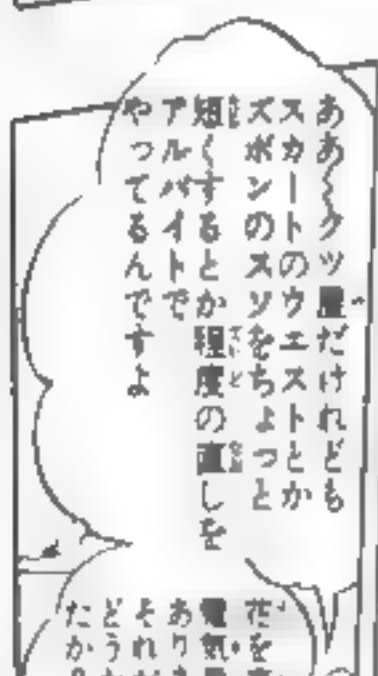 ああ〜クツ屋だけれども
スカートのウエストとか
ズボンのスソをちょっと
短くするとか程度の直しを
アルバイトで
やってるんですよ
花を
電気
あり
それ
どうか
たか